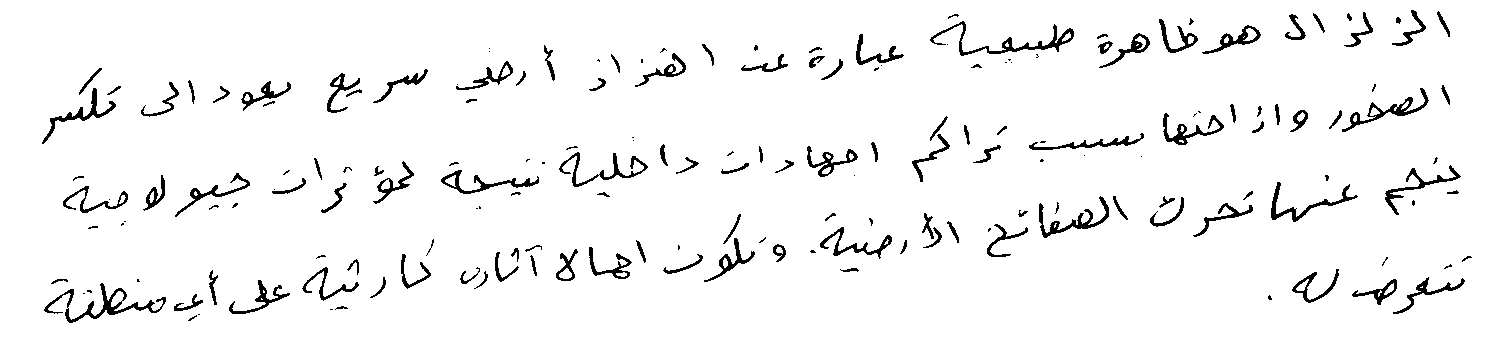 الزلزال هو ظاهرة طبيعية عبارة عن اهتزاز أرضي سريع يعود الى تكسر
الصخور وازاحتها بسبب تراكم اجهادات داخلية نتيجة لمؤثرات جيولاجية
ينجم عنها تحرك الصفائح الأرضية. وتكون اجمالا آثاره كارثية على أي منطقة
تتعرض له.